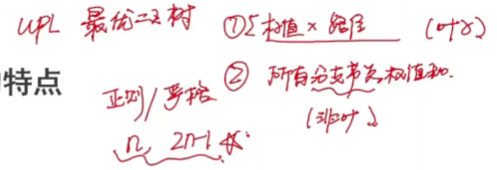 WPL 最优二叉树 ①Σ权值×路径 (叶子)
的特点 正则/严格 ② 所有分支节点权值和.
(非叶子)
n, 2n-1